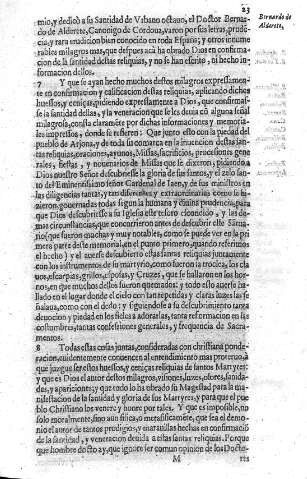 23
mio, y dedicò a su Santidad de Vrbano octauo, el Doctor Bernar-
do de Alderete, Canonigo de Cordoua, varon por sus letras, pruden-
cia, y rara erudicion bien conocido en toda España; y otros innume
rables milagros mas, que despues acà ha obrado Dios en confirma-
cion de la santidad destas reliquias, y no se han escrito, ni hecho in-
formacion dellos.
Bernardo de
Alderete,
7 Y que se ayan hecho muchos destos milagros expressamen-
te en confirmacion y calificacion destas reliquias, aplicando dichos
huessos, y cenizas, pidiendo expressamente a Dios, que confirmas-
se la santidad dellas, y la veneracion que se les deuia con alguna señal
milagrosa, consta claramẽte por dichas informaciones y memoria-
les impressos, donde se refieren: Que junto esto con la piedad del
pueblo de Arjona, y de toda su comarca en la inuencion destas san-
tas reliquias, oraciones, ayunos, Missas, sacrificios, processiones gene
rales, fiestas, y nouenarios de Missas que se dixeron, pidiendo a
Dios nuestro Señor descubriesse la gloria de sus santos, y el zelo san-
to del Eminentissimo señor Cardenal de Iaen, y de sus ministros en
las diligencias tantas, y tan diferentes y extraordinarias como se hi-
zieron, gouernadas todas segun la humana y diuina prudencia, para
que Dios descubriesse a su Iglesia este tesoro escondido, y las de-
mas circunstancias, que concurrieron antes de descubrir elle
(que fueron muchas y muy notables, como se puede ver en la pri
mera parte deste memorial, en el punto primero, quando referimos
el hecho) y el auerse descubierto estas santas reliquias juntamente
con los instrumentos de su martyrio, como fueron la troclea, los cla
uos, escarpias, grillos, esposas, y Cruzes, que se hallaron en los hor-
nos, en que muchos dellos fueron quemados; y todo esto auerse ha-
llado en el lugar donde el cielo con tan repetidas y claras luzes las se
ñalaua, como con el dedo: y siguiendose a su descubrimiento tanta
deuocion y piedad en los fieles a adorarlas, tanta reformacion en las
costumbres, tantas confessiones generales, y frequencia de Sacra-
mentos.
8 Todas estas cosas juntas, consideradas con christiana ponde-
racion, euidentemente conuencen al entendimiento mas proteruo, à
que juzgue ser estos huessos, y cenizas reliquias de santos Martyres: y
que es Dios el autor destos milagros, visiones, luzes, olores, sanida-
des, y apariciones; y que todo lo ha obrado su Magestad para la ma
nifestacion de la santidad y gloria de sus Martyres, y para que el pue
blo Christiano los venere, y honre por tales. Y que es imposible, no
solo moralmente, sino aun fisica, o metafisicamẽte, que sea el demo-
nio el autor de tantos prodigios, y marauillas hechas en confirmaciõ
de la santidad, y veneracion deuida a estas santas reliquias. Porque
que hombre docto ay, que ignore ser comun opinion de los Docto-
M
res